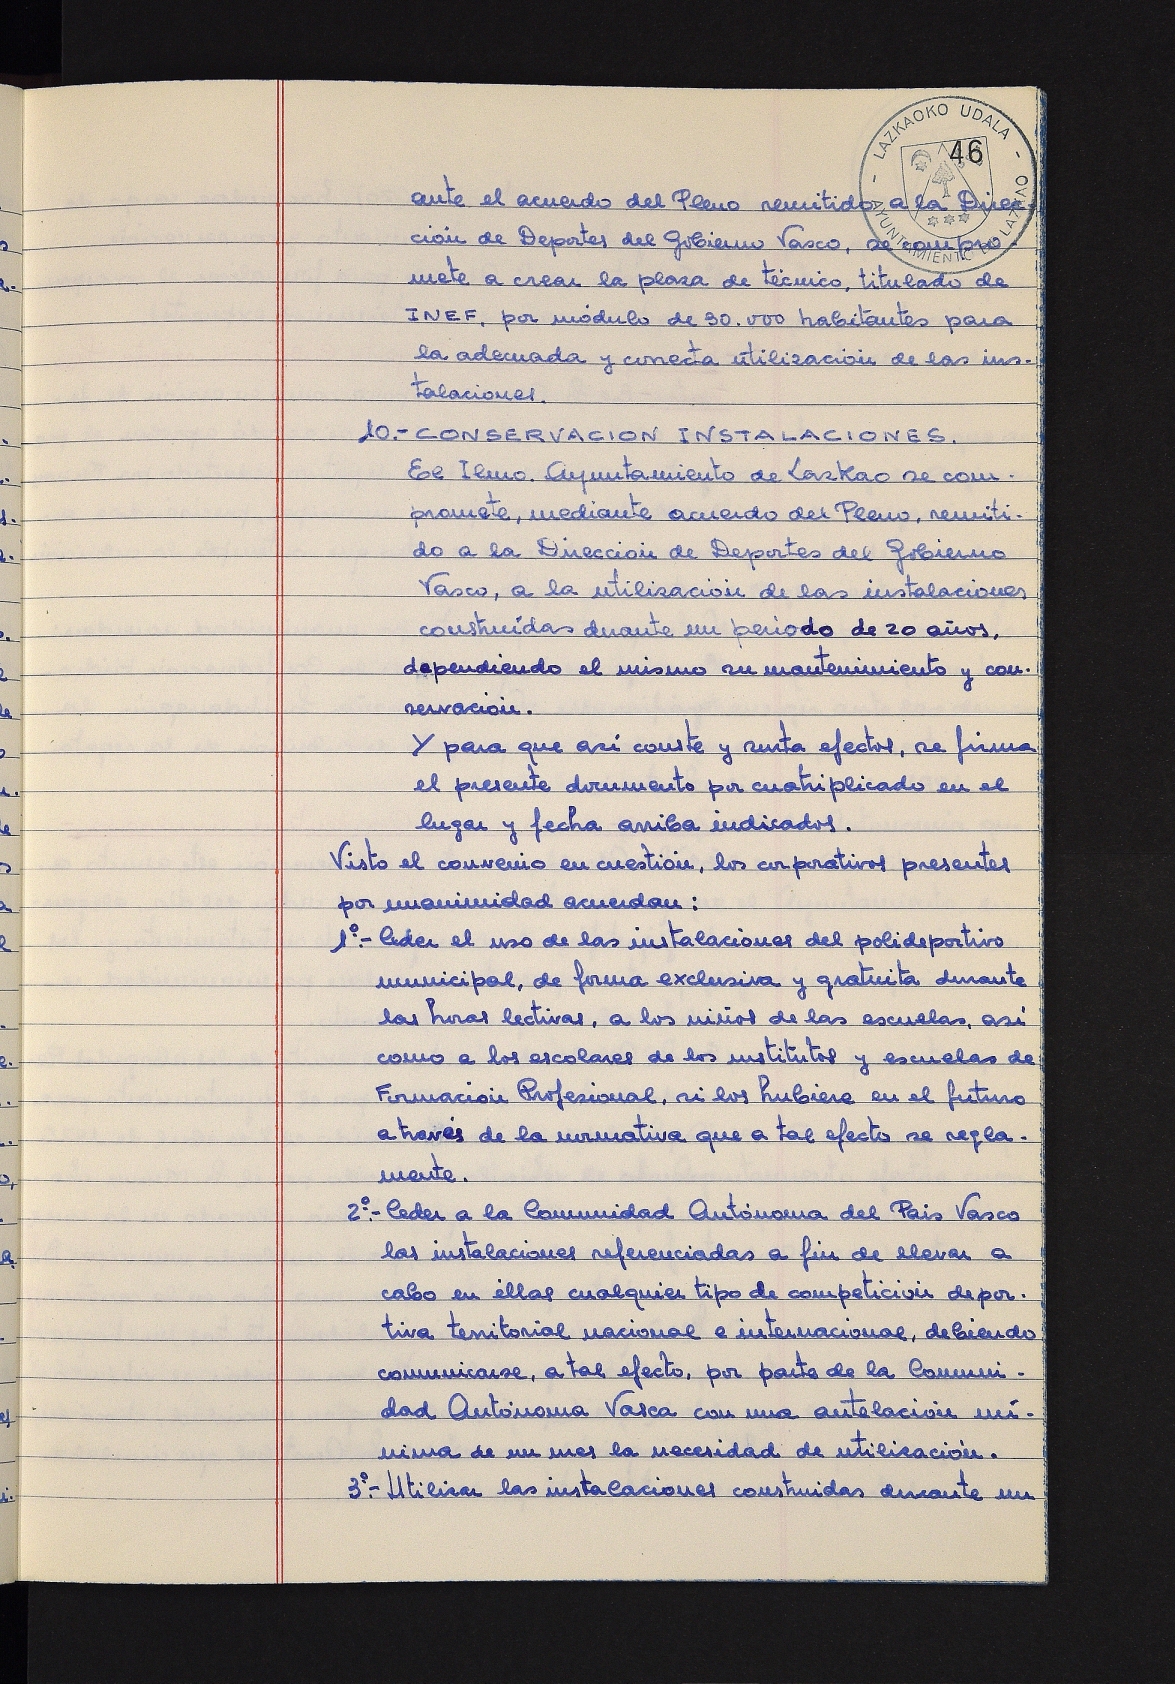 LAZKAOKO UDALA
46
AYUNTAMIENTO DE LAZKAO
ante el acuerdo del Pleno remitido a la Direc-
ción de Deportes del Gobierno Vasco, se compro-
mete a crear la plaza de técnico, titulado de
INEF, por módulo de 30.000 habitantes para
la adecuada y correcta utilización de las ins-
talaciones.
10.- CONSERVACION INSTALACIONES.
El Ilmo. Ayuntamiento de Lazkao se com-
promete, mediante acuerdo del Pleno, remiti-
do a la Dirección de Deportes del Gobierno
Vasco, a la utilización de las instalaciones
construídas durante un periodo de 20 años,
dependiendo el mismo su mantenimiento y con-
servación.
Y para que así conste y surta efectos, se firma
el presente documento por cuatriplicado en el
lugar y fecha arriba indicados.
Visto el convenio en cuestión, los corporativos presentes
por unanimidad acuerdan:
1º.- Ceder el uso de las instalaciones del polideportivo
municipal, de forma exclusiva y gratuita durante
las horas lectivas, a los niños de las escuelas, así
como a los escolares de los institutos y escuelas de
Formación Profesional, si los hubiere en el futuro
a través de la normativa que a tal efecto se regla-
mente.
2º.- Ceder a la Comunidad Autónoma del Pais Vasco
las instalaciones referenciadas a fin de llevar a
cabo en éllas cualquier tipo de competición depor-
tiva territorial nacional e internacional, debiendo
comunicarse, a tal efecto, por parte de la Comuni-
dad Autónoma Vasca con una antelación mí-
nima de un mes la necesidad de utilización.
3º.- Utilizar las instalaciones construidas durante un